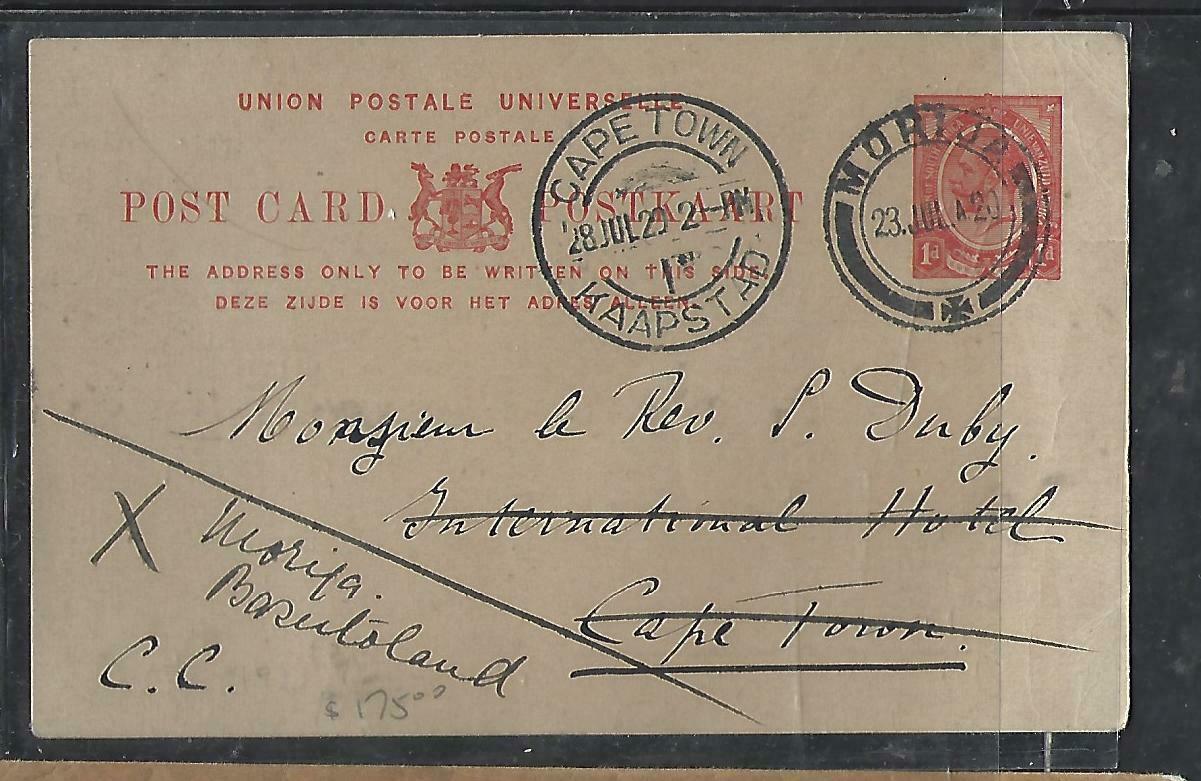 UNION POSTALE UNIVERSELLE
CARTE POSTALE
POST CARD POSTKAART
THE ADDRESS ONLY TO BE WRITTEN ON THIS SIDE.
DEZE ZIJDE IS VOOR HET ADRES ALLEEN.
CAPE TOWN
28 JUL 20 2 - PM
KAAPSTAD
MORIJA
23. JUL A 20
1d
Monsieur le Rev. S. Duby.
International Hotel
Cape Town.
X Morija.
Basutoland
C. C.
$ 175⁰⁰